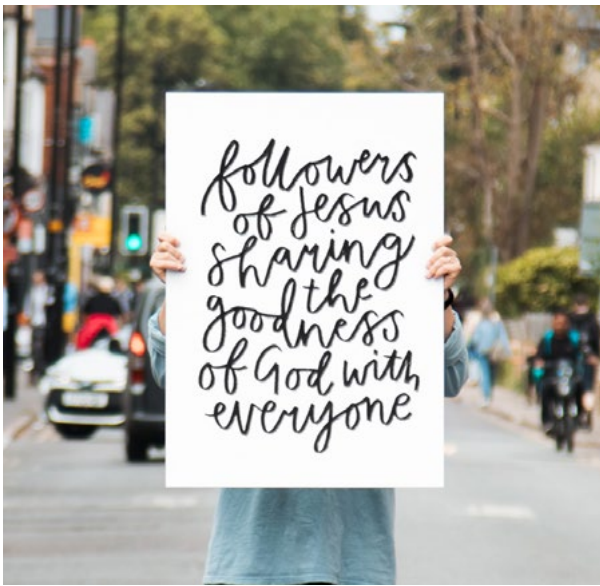 followers
of Jesus
sharing
the
goodness
of God with
everyone